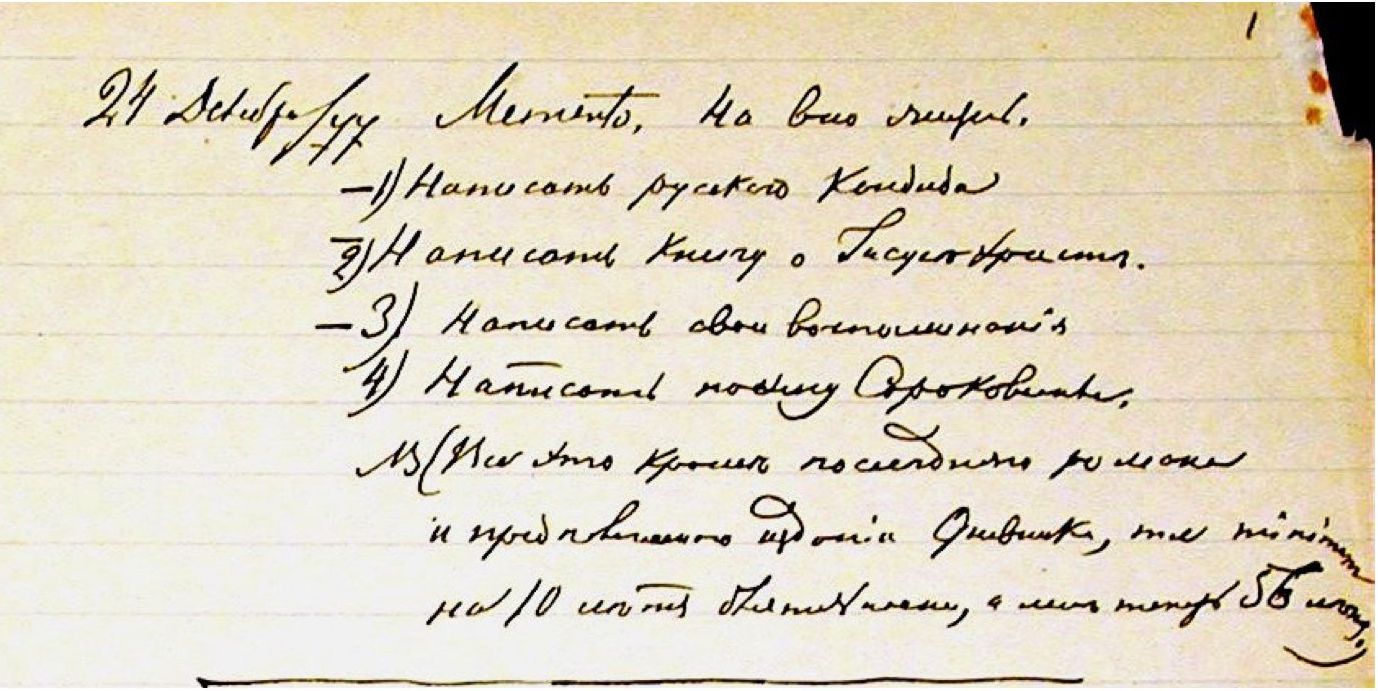 1
24 Декабря/77 Memento. На всю жизнь.
—1) Написать русского Кандида
2) Написать книгу о Іисусѣ Христѣ.
—3) Написать свои воспоминанія
4) Написать поэму Сороковины.
NB (Все это кромѣ послѣдняго романа
и предполагаемаго изданія Дневника, т. е. minimum
на 10 лѣтъ дѣятельности, а мнѣ теперь 56 лѣтъ).